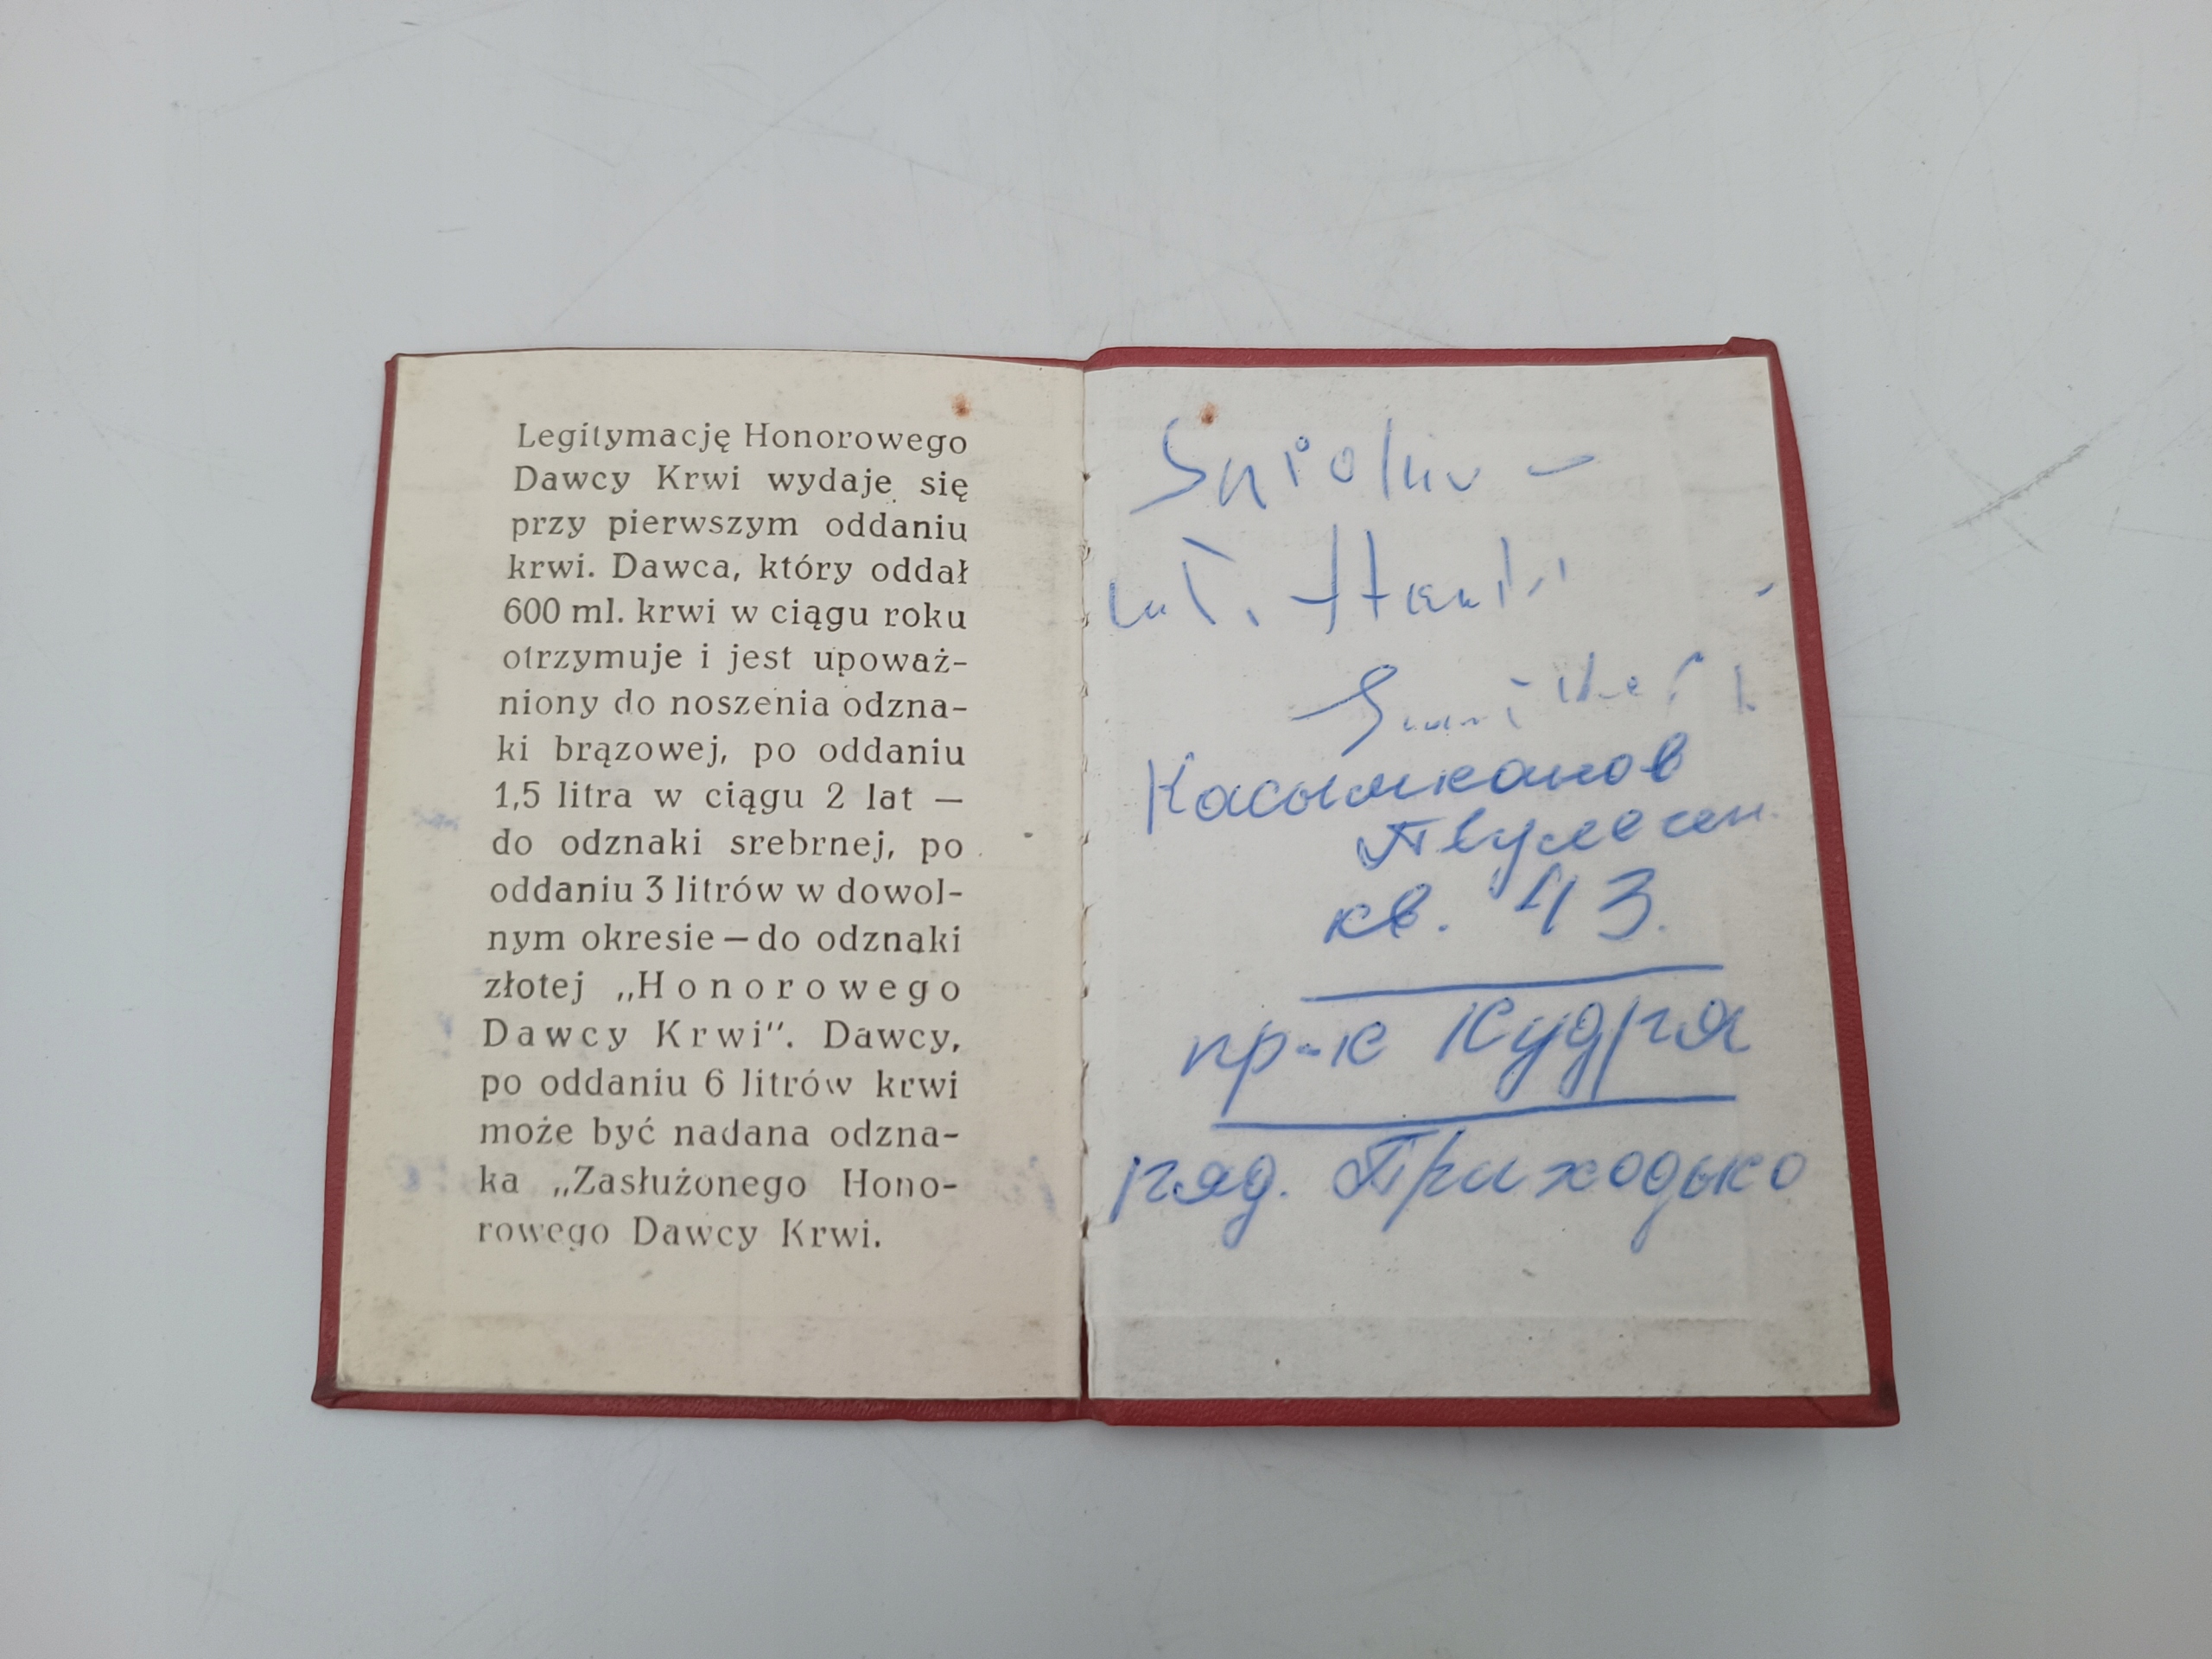 Legitymację Honorowego
Dawcy Krwi wydaje się
przy pierwszym oddaniu
krwi. Dawca, który oddał
600 ml. krwi w ciągu roku
otrzymuje i jest upoważ-
niony do noszenia odzna-
ki brązowej, po oddaniu
1,5 litra w ciągu 2 lat —
do odznaki srebrnej, po
oddaniu 3 litrów w dowol-
nym okresie — do odznaki
złotej „Honorowego
Dawcy Krwi". Dawcy,
po oddaniu 6 litrów krwi
może być nadana odzna-
ka „Zasłużonego Hono-
rowego Dawcy Krwi.
Касымканов
кв. 43.
пр-к Кудря
ряд. Приходько